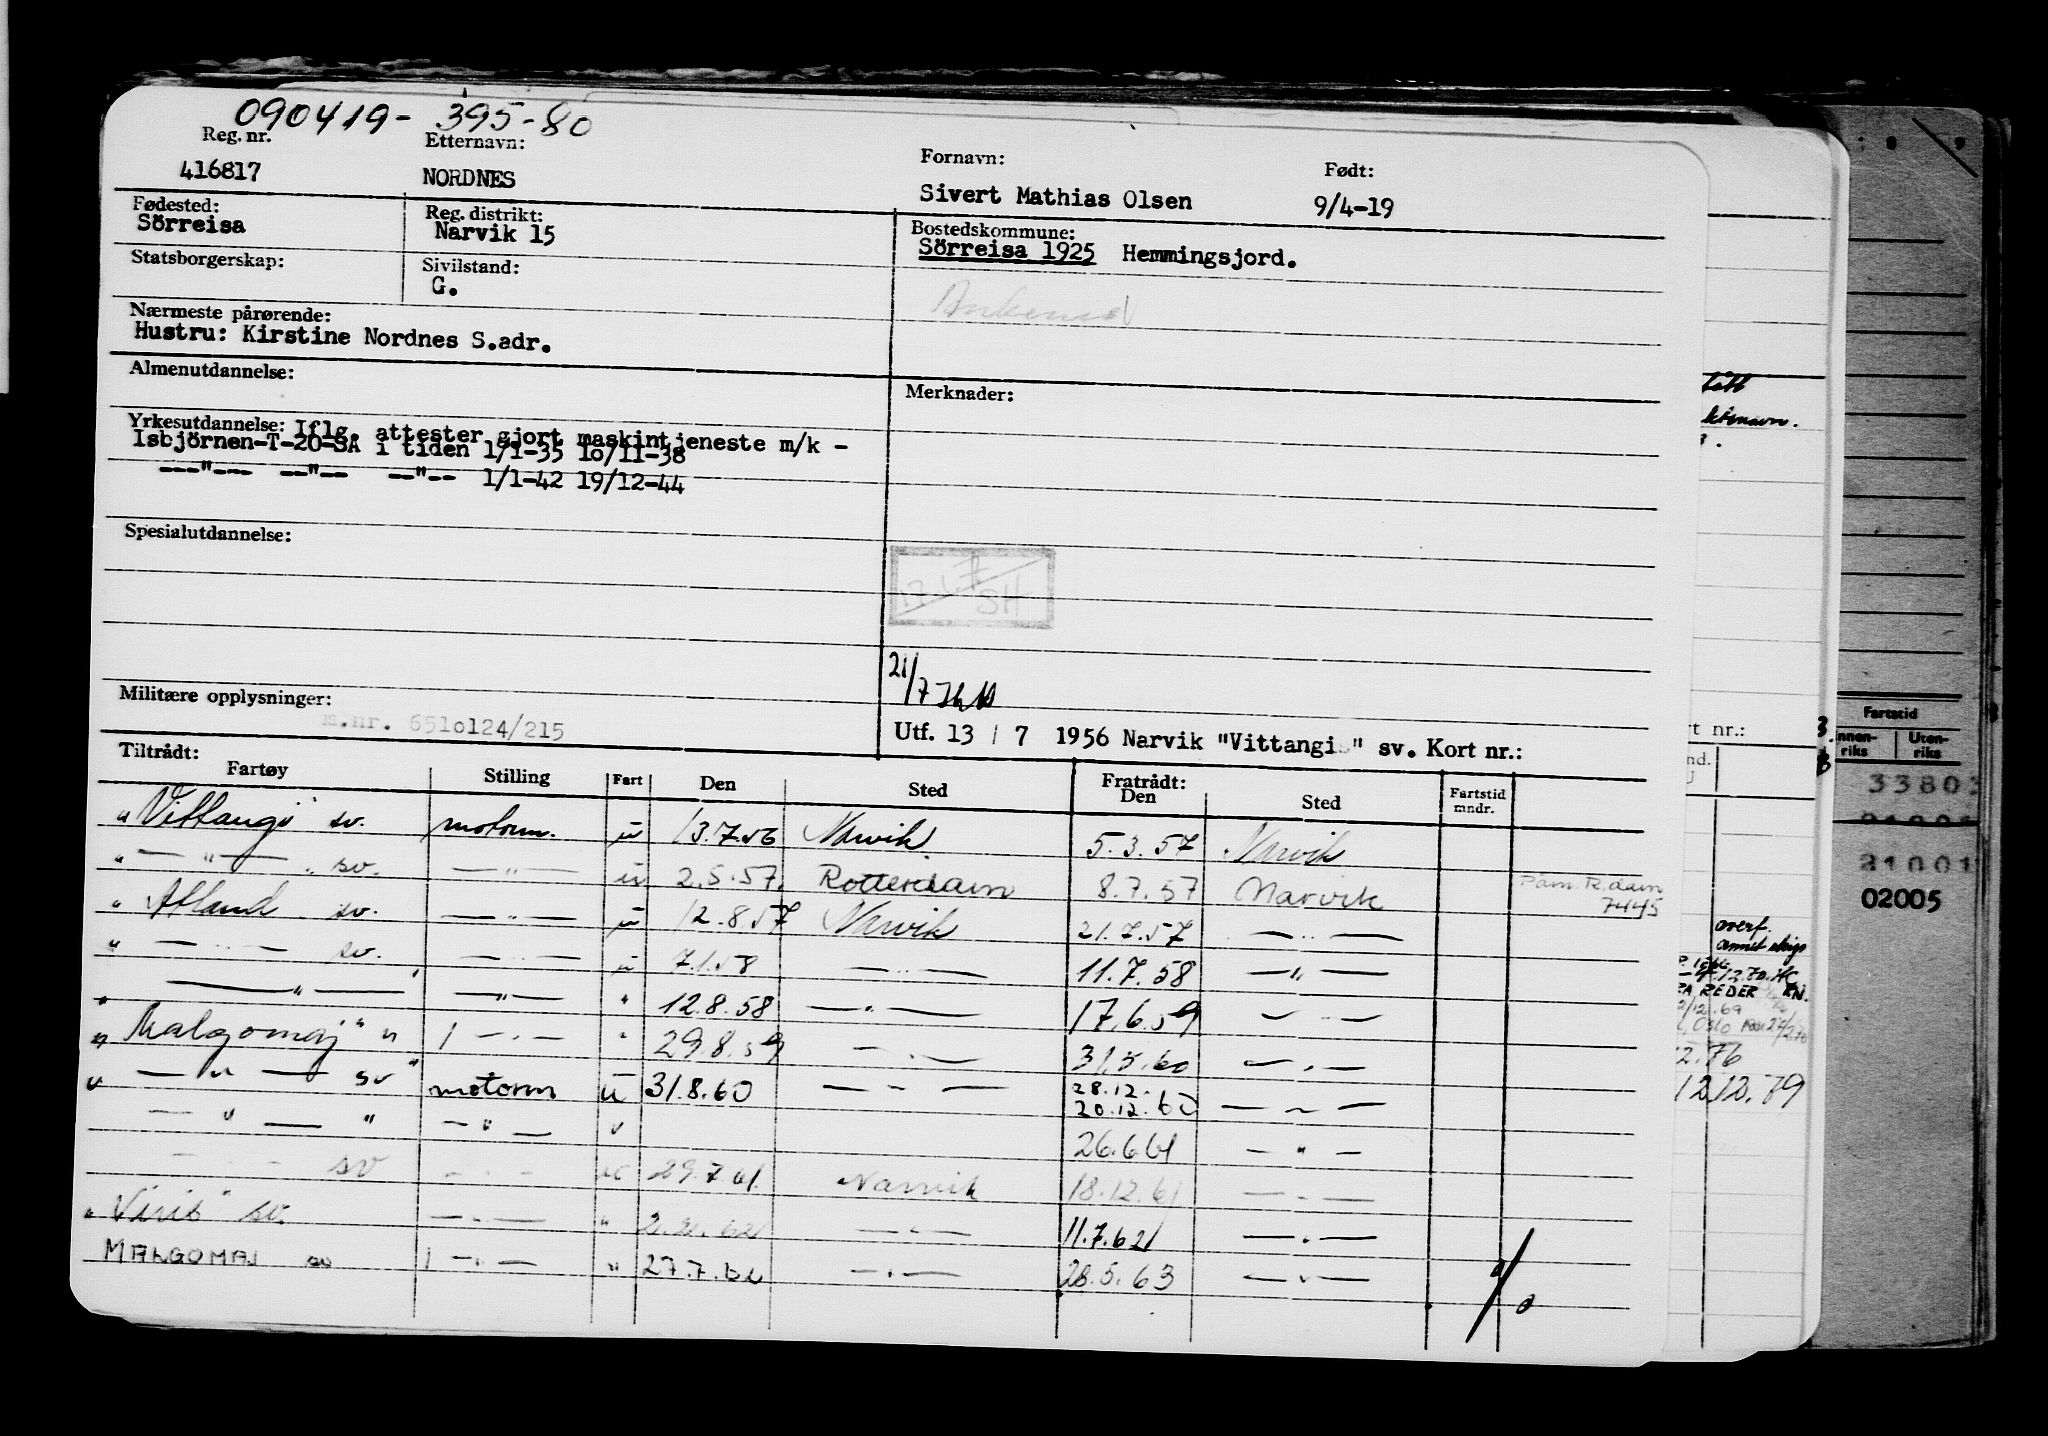 090419-395-80
Reg. nr. Etternavn: Fornavn: Født:
416817 NORDNES Sivert Mathias Olsen 9/4-19
Fødested: Reg. distrikt: Bostedskommune:
Sörreisa Narvik 15 Sörreisa 1925 Hemmingsjord.
Statsborgerskap: Sivilstand:
G.
Nærmeste pårørende:
Hustru: Kirstine Nordnes S.adr.
Almenutdannelse: Merknader:
Yrkesutdannelse: Iflg. attester gjort maskintjeneste m/k -
Isbjörnen-T-20-SA i tiden 1/1-35 10/11-38
---"--- --"-- --"-- 1/1-42 19/12-44
Spesialutdannelse:
SH
21/7
Militære opplysninger:
m.nr. 6510124/215
Utf. 13 / 7 1956 Narvik "Vittangi" sv. Kort nr.:
Tiltrådt: Fratrådt:
Fartøy Stilling Fart Den Sted Den Sted Fartstid mndr.
"Vittangi" sv. motorm. u 13.7.56 Narvik 5.3.57 Narvik
" — " — " sv. — " — u 2.5.57. Rotterdam 8.7.57 Narvik Påm. R.dam
7445
" Abland sv. — " — u 12.8.57 Narvik 21.7.57 — " —
" — " — sv. — " — u 7.1.58 — " — 11.7.58 — " —
" — " — " — " — " 12.8.58 — " — 17.6.59 — " —
" Malgomaj " " — " — " 29.8.59 — " — 31.5.60 — " —
" — " — sv " motorm u 31.8.60 — — — 28.12.
20.12.60 — " —
— " — " — " — " 26.6.61 — " —
— " — sv — " — u 29.7.61. Narvik 18.12.61 — " —
"Virib" sv. — " — " — " — 11.7.62 — " —
MALGOMAJ sv — " — " 27.7.62 — " — 28.5.63 — " —
rt nr.:
Fartstid
Innen-riks Uten-riks
33803
21001
02005
overf.
annet
REDER
Oslo
2.76
12.12.79